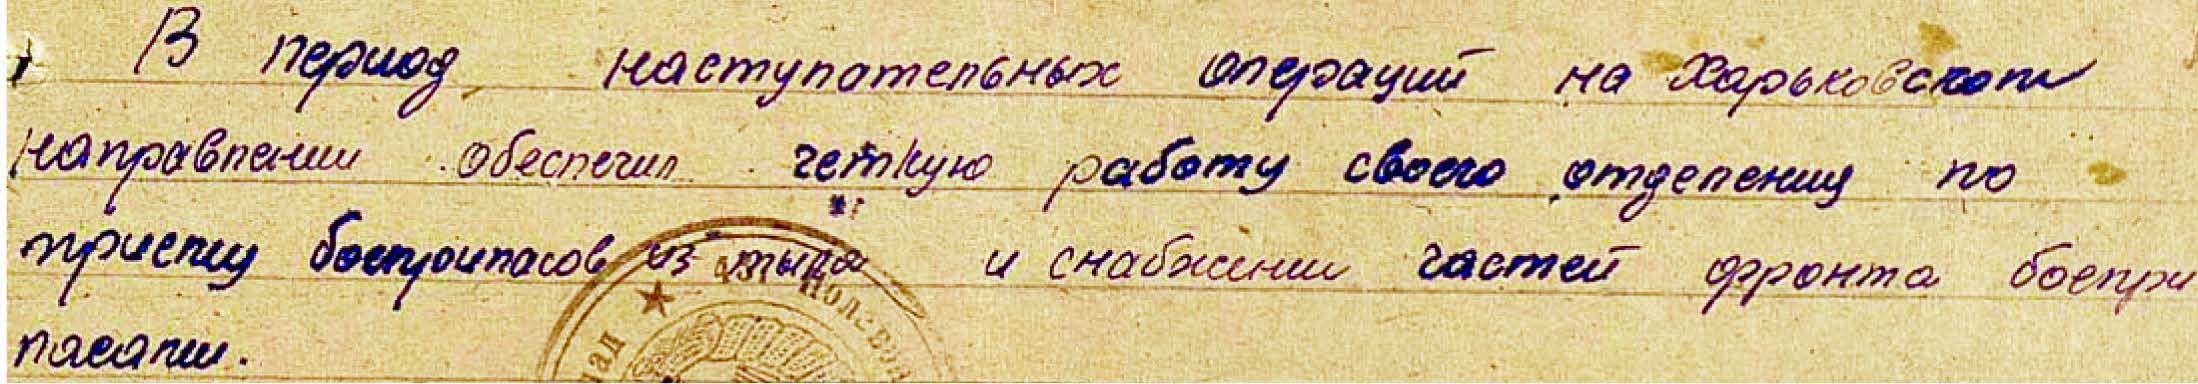 В период наступательных операций на Харьковском
направлении обеспечил четкую работу своего отделения по
приему боеприпасов из тыла и снабжении частей фронта боепри
пасами.
Полевой